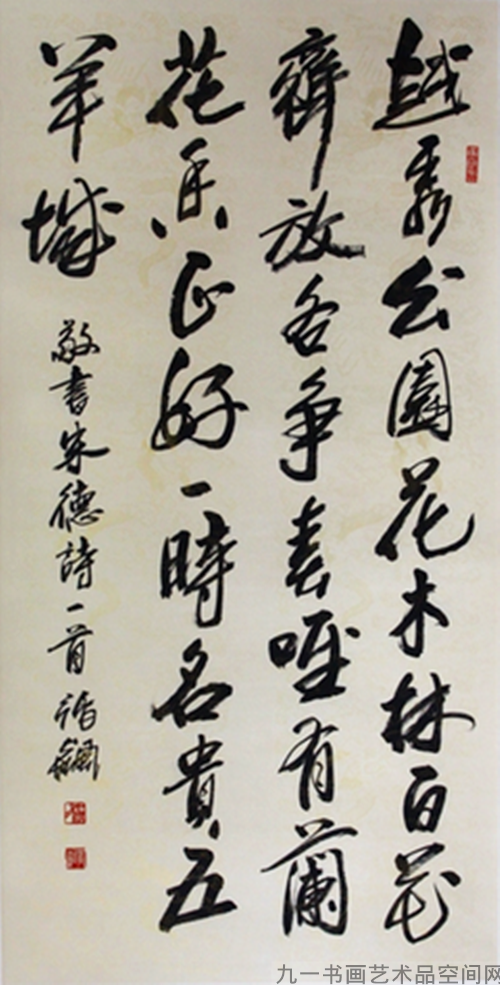 越秀公園花木林百花
齊放各争春唯有蘭
花香正好一時名貴五
羊城
敬書朱德詩一首
九一书画艺术品空间网